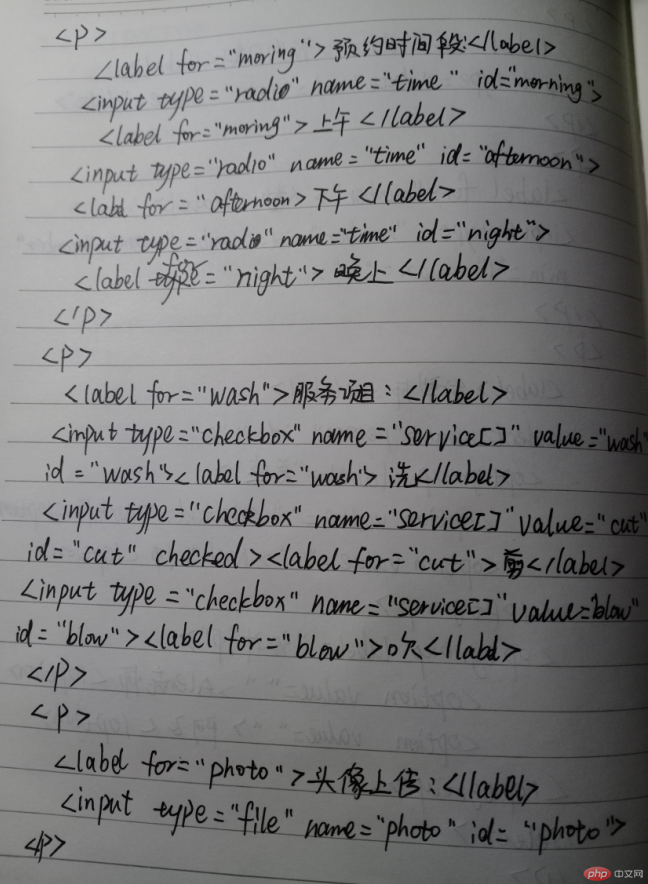 <p>
<label for="moring">预约时间段:</label>
<input type="radio" name="time" id="morning">
<label for="moring">上午</label>
<input type="radio" name="time" id="afternoon">
<label for="afternoon>下午</label>
<input type="radio" name="time" id="night">
<label for="night">晚上</label>
</p>
<p>
<label for="wash">服务项目:</label>
<input type="checkbox" name="service[]" value="wash"
id="wash"><label for="wash">洗</label>
<input type="checkbox" name="service[]" value="cut"
id="cut" checked><label for="cut">剪</label>
<input type="checkbox" name="service[]" value="blow"
id="blow"><label for="blow">吹</label>
</p>
<p>
<label for="photo">头像上传:</label>
<input type="file" name="photo" id="photo">
<p>
php 中文网